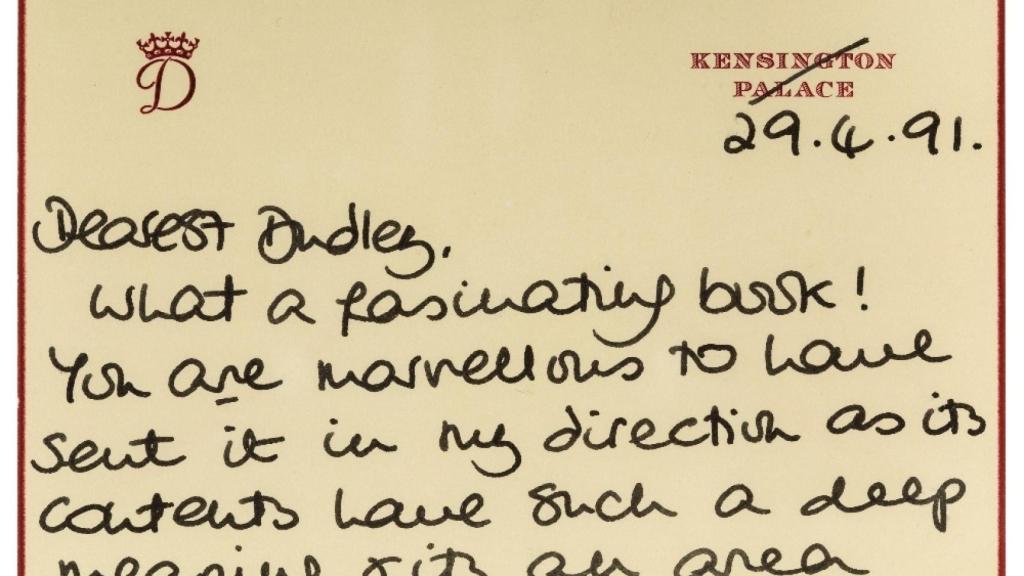 D
KENSINGTON
PALACE
29.4.91.
Dearest Dudley,
What a fascinating book!
You are marvellous to have
sent it in my direction as its
contents have such a deep
meaning & its an area